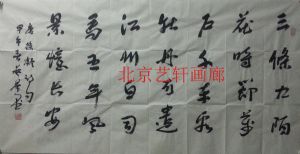 三條九陌
花時節萬
户千車看
牡丹爭遣
江州白司
馬五年風
景憶長安
唐徐凝詩句
甲午
北京艺轩画廊